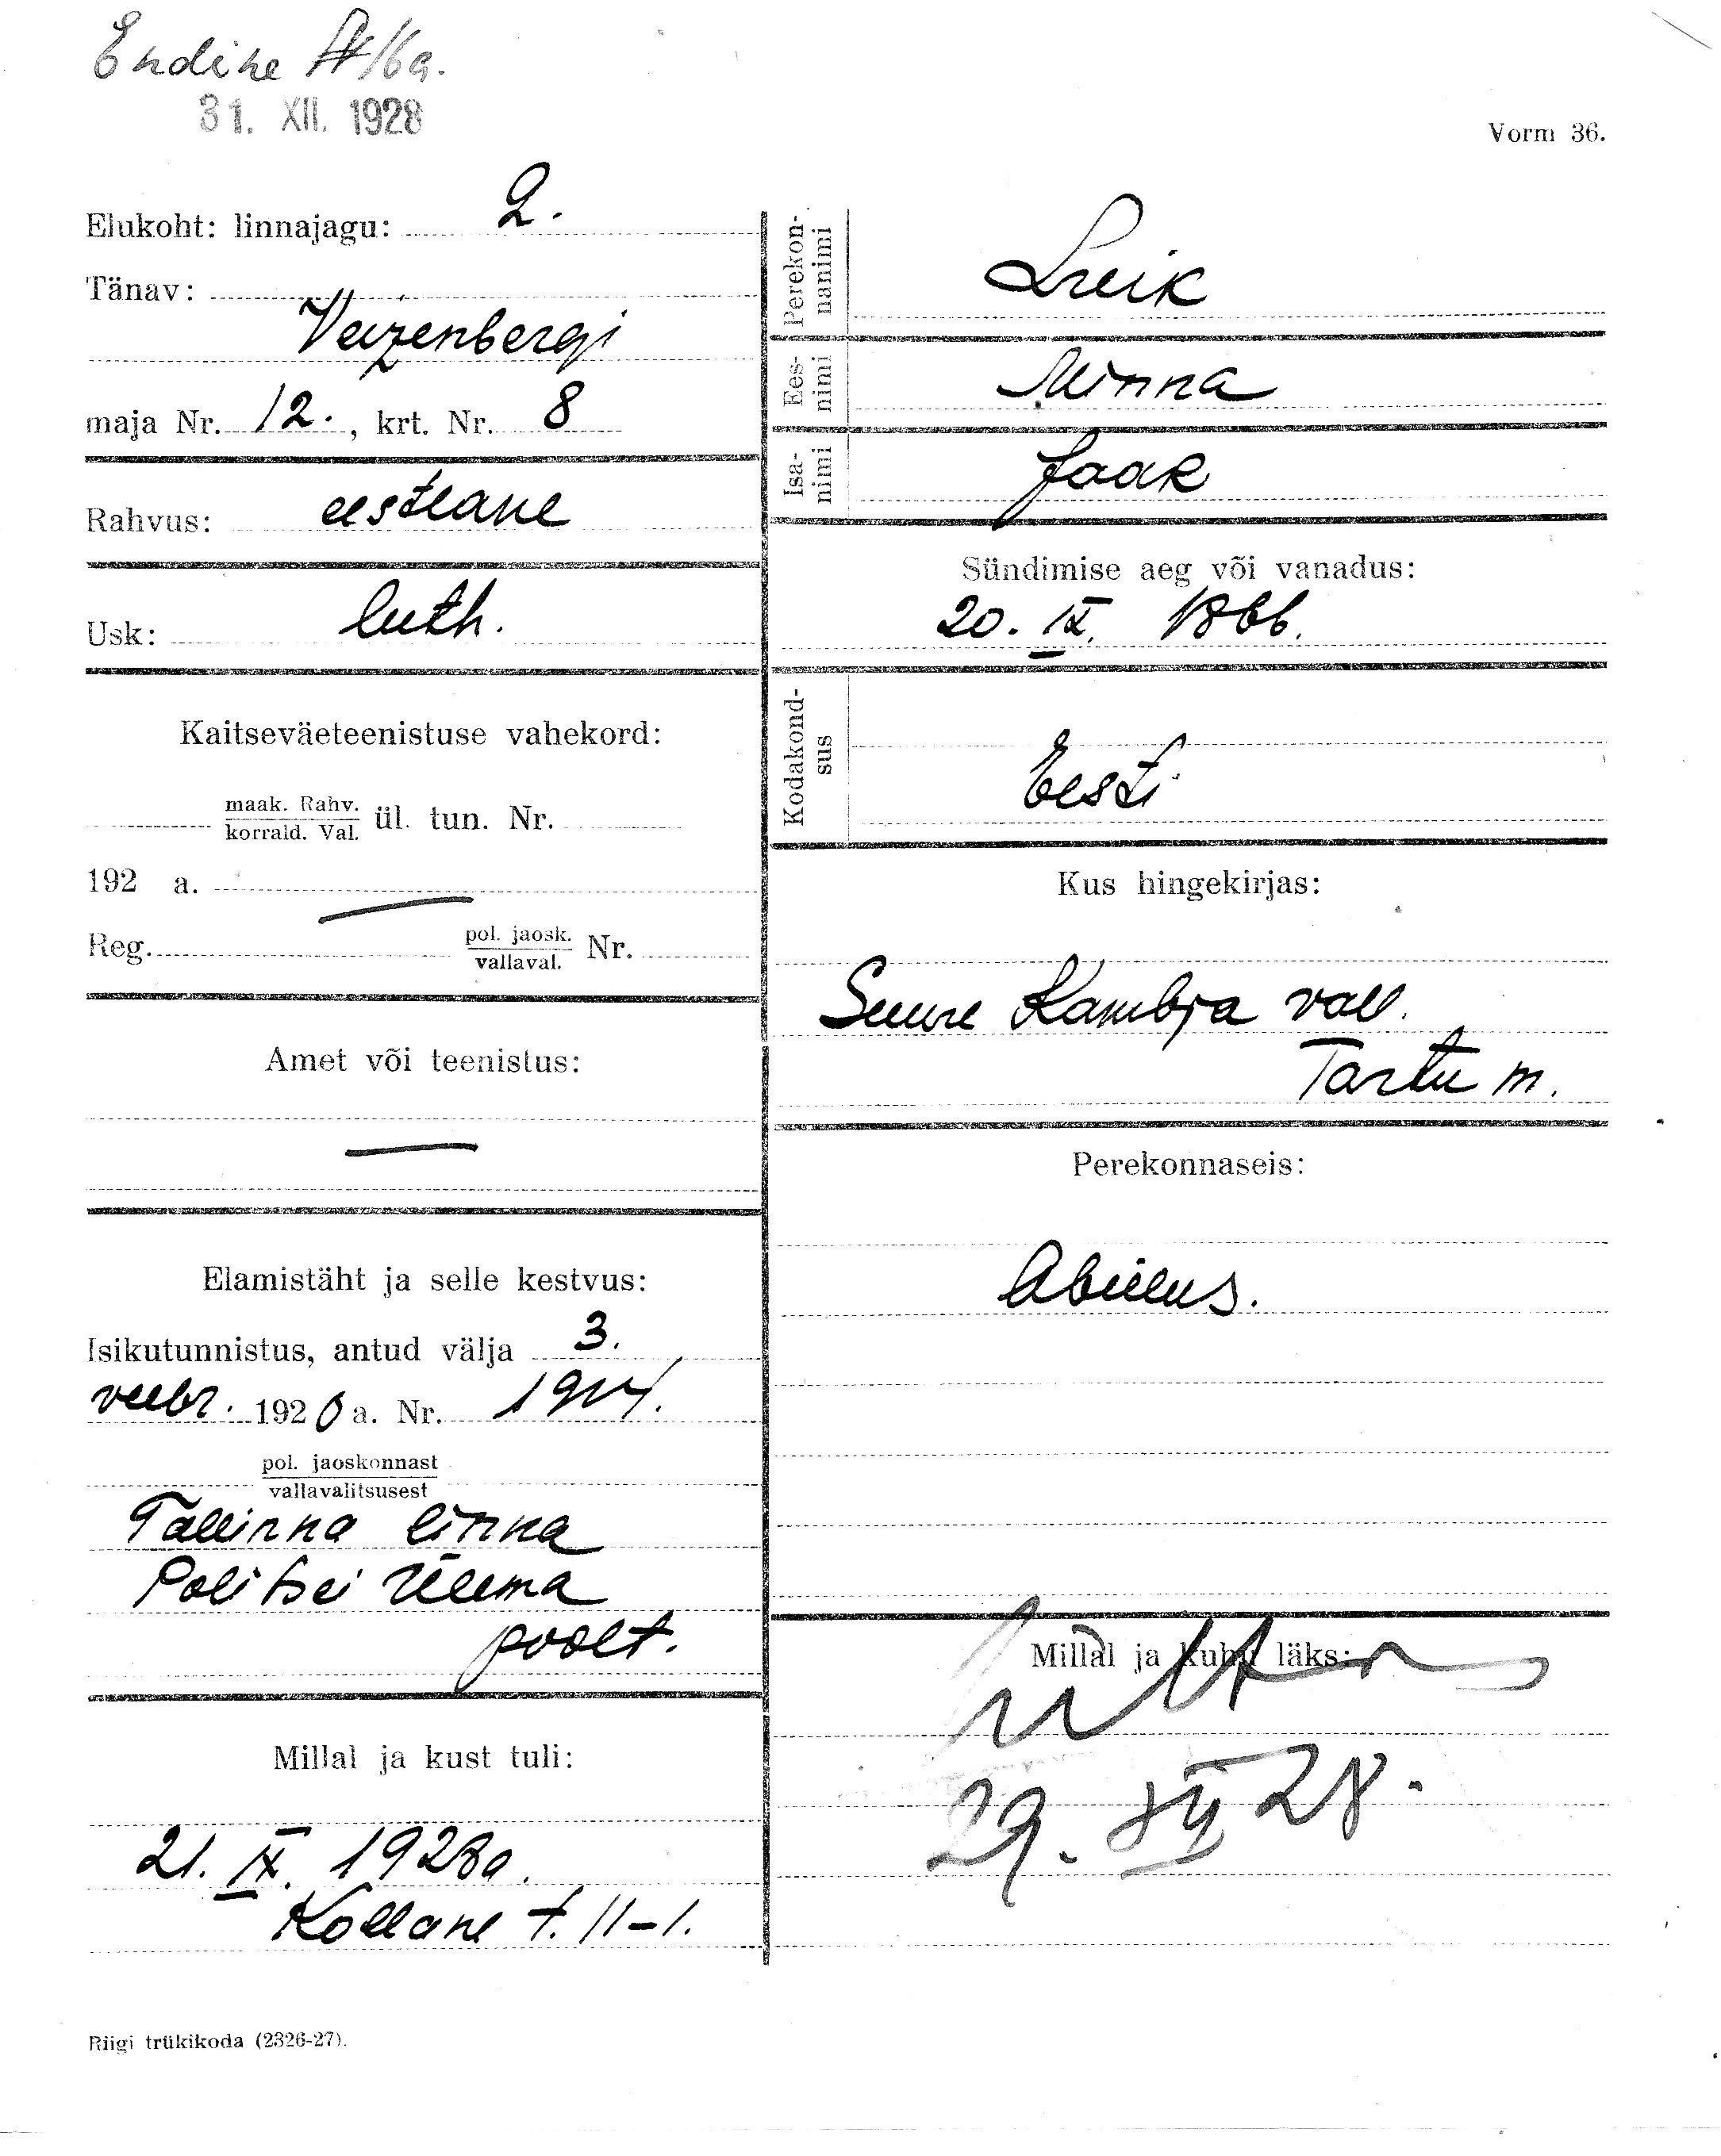 Endine
31. XII. 1928
Vorm 36.
Elukoht: linnajagu: 2.
Tänav:
Veizenbergi
maja Nr. 12. , krt. Nr. 8
Rahvus: eestlane
Usk: luth.
Kaitseväeteenistuse vahekord:
maak. Rahv.
korrald. Val.
ül. tun. Nr.
192 a.
Reg. pol. jaosk. Nr.
vallaval.
Amet või teenistus:
Elamistäht ja selle kestvus:
Isikutunnistus, antud välja 3.
veebr. 1920 a. Nr.
pol. jaoskonnast
vallavalitsusest
Tallinna linna
Politsei Ülema
poolt.
Millal ja kust tuli:
21. IX. 1928a.
Kollane t. 11-1.
Perekonnanimi
Eesnimi Minna
Isanimi Jaak
Sündimise aeg või vanadus:
20. IX. 1866.
Kodakondsus
Eesti
Kus hingekirjas:
Suure Kambja vall.
Tartu m.
Perekonnaseis:
Abielus.
Millal ja kuhu läks:
29. XII 28.
Riigi trükikoda (2326-27).